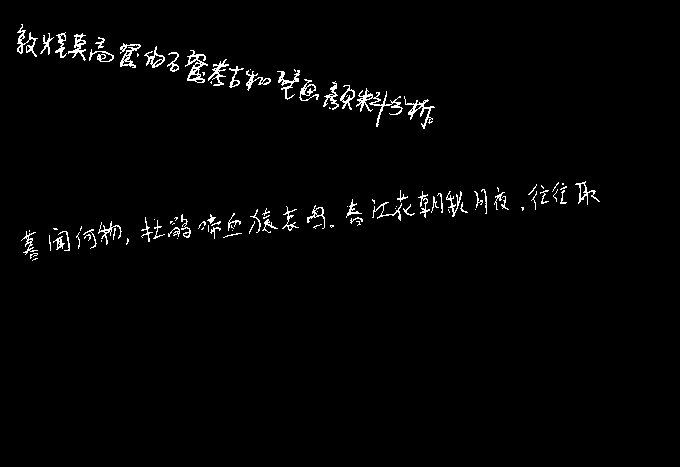 敦煌莫高窟的石窟考古和壁画颜料分析
暮闻何物,杜鹃啼血猿哀鸣。春江花朝秋月夜,往往取